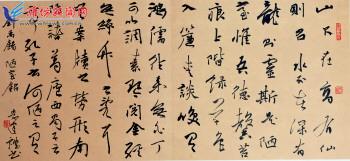 山不在高有仙
則名水不在深有
龍則靈斯是陋
室惟吾德馨苔
痕上階綠草色
入簾青談笑有
鴻儒往來無白丁
可以調素琴閱金經
無絲竹之亂耳
案牘之勞形南
諸葛廬西蜀子云
孔子云何陋之有
劉禹錫 陋室銘